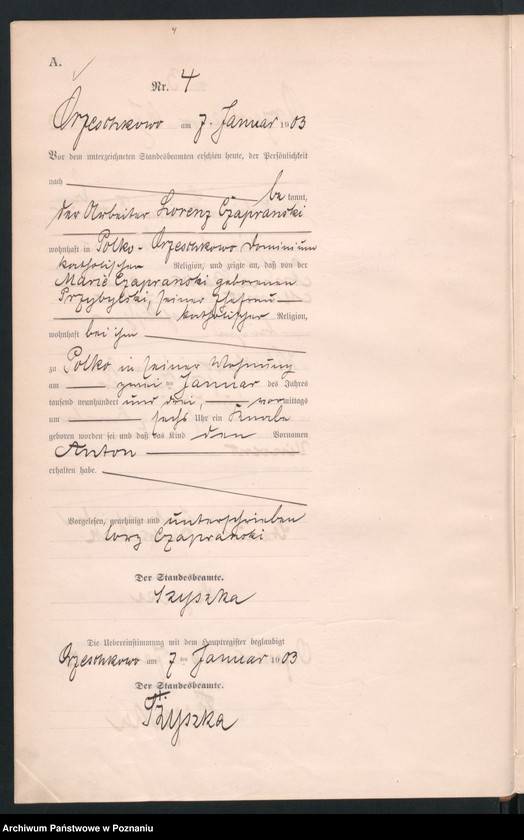 4
A.
Nr. 4
Orzeschkowo am 7. Januar 1903
Vor dem unterzeichneten Standesbeamten erschien heute, der Persönlichkeit
nach
be kannt,
der Arbeiter Lorenz Czapranski
wohnhaft in Polko-Orzeschkowo Dominium
katholischer Religion, und zeigte an, daß von der
Marie Czapranski geborenen
Przybylski, seiner Ehefrau
katholischer Religion,
wohnhaft bei ihm
zu Polko in seiner Wohnung
am zwei ten Januar des Jahres
tausend neunhundert und drei, vormittags
um sechs Uhr ein Knabe
geboren worden sei und daß das Kind den Vornamen
Anton
erhalten habe.
Vorgelesen, genehmigt und unterschrieben
Czapranski
Der Standesbeamte.
Szyszka
Die Uebereinstimmung mit dem Hauptregister beglaubigt
Orzeschkowo am 7 ten Januar 1903
Der Standesbeamte.
Szyszka
Archiwum Państwowe w Poznaniu